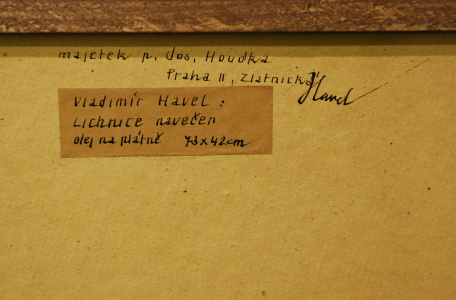 majetek p. Jos. Houdka
Praha II, Zlatnická
Havel
Vladimír Havel:
Lichnice navečer
olej na plátně 73x42cm